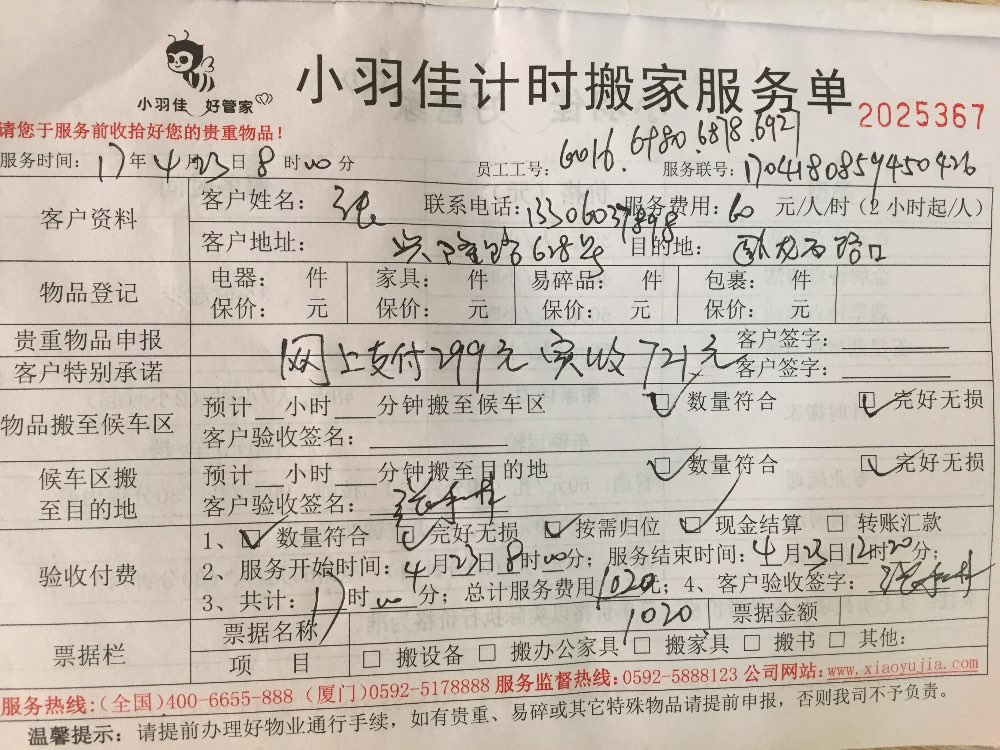 小羽佳 好管家
小羽佳计时搬家服务单
2025367
请您于服务前收拾好您的贵重物品！
服务时间：17年4月23日8时00分 员工工号：6016. 6980.6878.6927 服务联号：1704180859450426
客户资料
客户姓名：张 联系电话：13306037898 服务费用：60 元/人/时（2小时起/人）
客户地址：兴隆路628号 目的地：卧龙石路口
物品登记
电器： 件 家具： 件 易碎品： 件 包裹： 件
保价： 元 保价： 元 保价： 元 保价： 元
贵重物品申报 客户签字：
客户特别承诺 网上支付299元 实收721元 客户签字：
物品搬至候车区
预计 小时 分钟搬至候车区 数量符合 完好无损
客户验收签名：
候车区搬至目的地
预计 小时 分钟搬至目的地 数量符合 完好无损
客户验收签名：
验收付费
1、 数量符合 完好无损 按需归位 现金结算 □ 转账汇款
2、服务开始时间：4月23日8时00分；服务结束时间：4月23日12时20分；
3、共计：17时00分；总计服务费用1020元；4、客户验收签字：
票据栏
票据名称 1020 票据金额
项 目 □ 搬设备 □ 搬办公家具 □ 搬家具 □ 搬书 □ 其他：
服务热线：（全国）400-6655-888（厦门）0592-5178888 服务监督热线：0592-5888123 公司网站：www.xiaoyujia.com
温馨提示：请提前办理好物业通行手续，如有贵重、易碎或其它特殊物品请提前申报，否则我司不予负责。